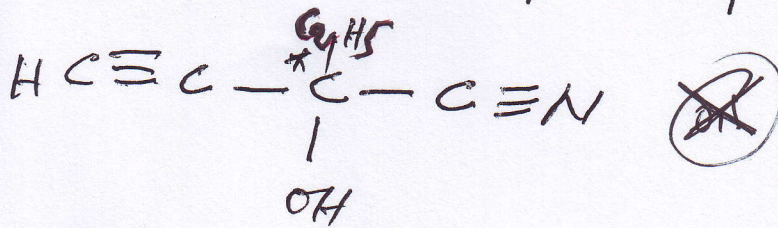 C2H5
HC≡C—*C—C≡N
OH